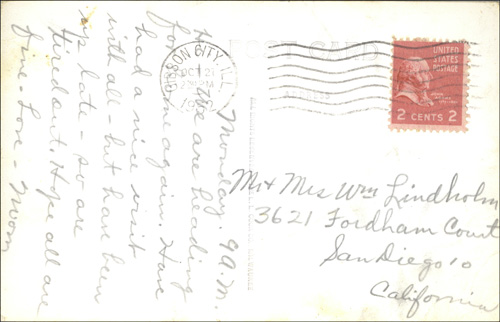 Monday. 9 A.M.
Hi - We are heading
for home again. Have
had a nice visit
with all - but have been
up late - so are
tired out. Hope all are
fine - Love - Mom
POST CARD
CARSON CITY
OCT 21
UNITED
STATES
POSTAGE
2 CENTS 2
Mr & Mrs Wm Lindholm
3621 Fordham Court
San Diego 10
California